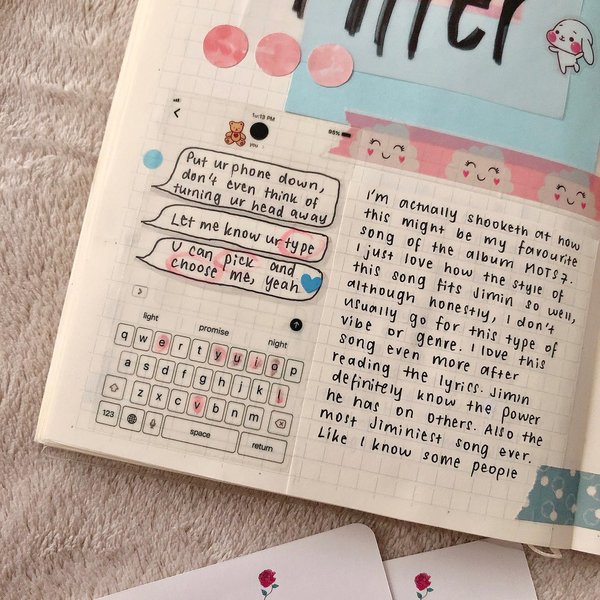 Filter
1:13 PM
95%
you
Put ur phone down,
don't even think of
turning ur head away
Let me know ur type
U can pick and
choose me, yeah
light promise night
q w e r t y u i o p
a s d f g h j k l
z x c v b n m
123 space return
I'm actually shooketh at how
this might be my favourite
song of the album MOTS7.
I just love how the style of
this song fits Jimin so well,
although honestly, I don't
usually go for this type of
vibe or genre. I love this
song even more after
reading the lyrics. Jimin
definitely know the power
he has on others. Also the
most Jiminiest song ever.
Like I know some people